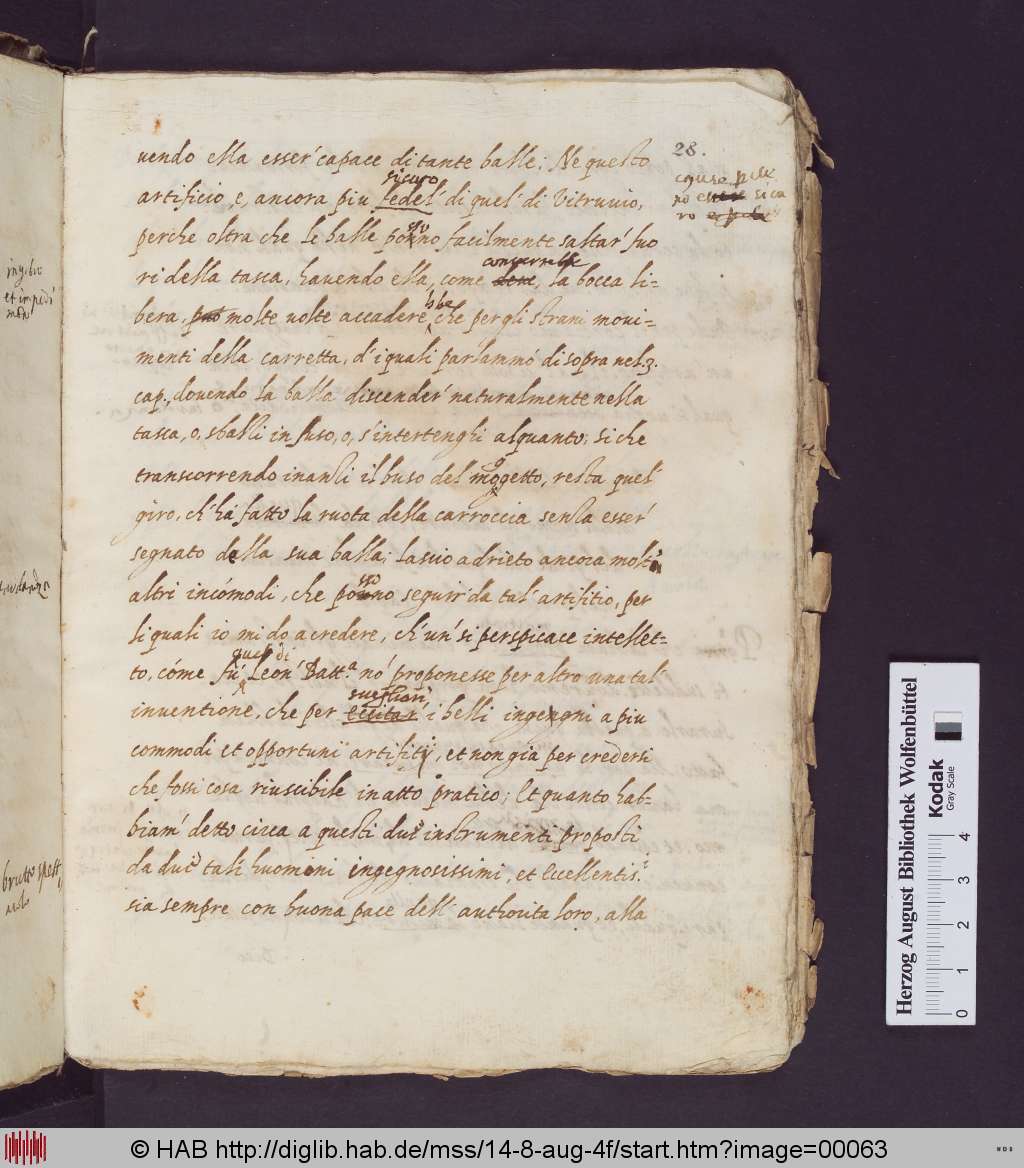 28.
uendo ella esser' capace di tante balle; Ne questo
sicuro
artificio, e, ancora piu fedel' di quel' di Vitruuio,
perche oltra che le balle ponno facilmente saltar' fuo
ri della tasca, hauendo ella, come deue, la bocca li=
bera, può molte uolte accadere che per gli strani moui=
menti della carretta, d'i quali parlammo disopra nel 3.
cap., douendo la balla discender' naturalmente nella
tasca, o, sballi in fuso, o, s'intertenghi alquanto; si che
transcorrendo inanzi il buso del mogetto, resta quel'
giro, ch' ha fatto la ruota della carroccia senza esser'
segnato della sua balla; lascio adrieto ancora molti
altri incómodi, che ponno seguir' da tal' artifitio, per
li quali io mi do a credere, ch' un' si perspicace intellet=
quel di
to, cóme fú Leon' Batt.a nó proponesse per altro una tal'
suegliari
inuentione, che per eccitar' i belli ingegni a piu
commodi et opportuni artifitij, et non gia per credersi
che fossi cosa riuscibile in atto pratico; Et quanto hab=
biam' detto circa a questi due instrumenti proposti
da due tali huomini ingegnosissimi, et Eccellentis.i
sia sempre con buona pace dell' authorita loro, alla
et impedi
brutto spett
Herzog August Bibliothek Wolfenbüttel
Kodak
Gray Scale
0 1 2 3 4
© HAB http://diglib.hab.de/mss/14-8-aug-4f/start.htm?image=00063